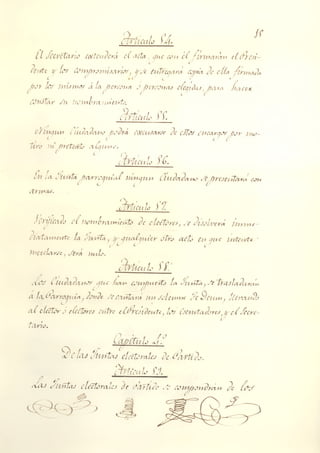 Articulo 54.
El Secretario extenderá el acta, que con él firmarán el Presi-
dente y los Compromisarios, y se entregará copia de ella firmada
por los mismos á la persona ó personas elegidas, para hacer
constar su nombramiento.
Articulo 55.
Ningun Ciudadano podrá escusarse de estos encargos por mo-
tivo ni pretesto alguno.
Articulo 56.
En la Junta parroquial ningun Ciudadano se presentará con
armas.
Articulo 57.
Verificado el nombramiento de electores, se disolverá inme-
diatamente la Junta, y qualquier otro acto en que intente
mezclarse, será nulo.
Articulo 58.
Los Ciudadanos que han compuesto la Junta, se trasladarán
á la Parroquia, donde se cantará un solemne Te Deum, llevando
al elector ó electores entre el Presidente, los Escrutadores, y el Secre-
tario.
Capitulo 4.º
De las Juntas electorales de Partido.
Articulo 59.
Las Juntas electorales de Partido se compondrán de los